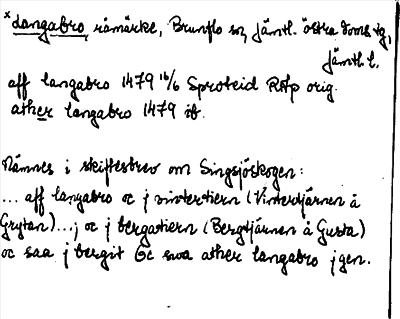 ×dangabro, råmärke, Brunflo sn, Jämtl. östra doms. tg,
Jämtl. l.
aff langabro 1479 16/6 Sproteid RAp orig.
ather langabro 1479 ib.
Nämnes i skiftesbrev om Singsjöskogen:
... aff langabro oc j vintertiern (Vintertjärnen å
Grytan)...j oc j bergatiern (Bergtjärnen å Gusta)
oc saa j bergit Oc swa ather langabro jgen.